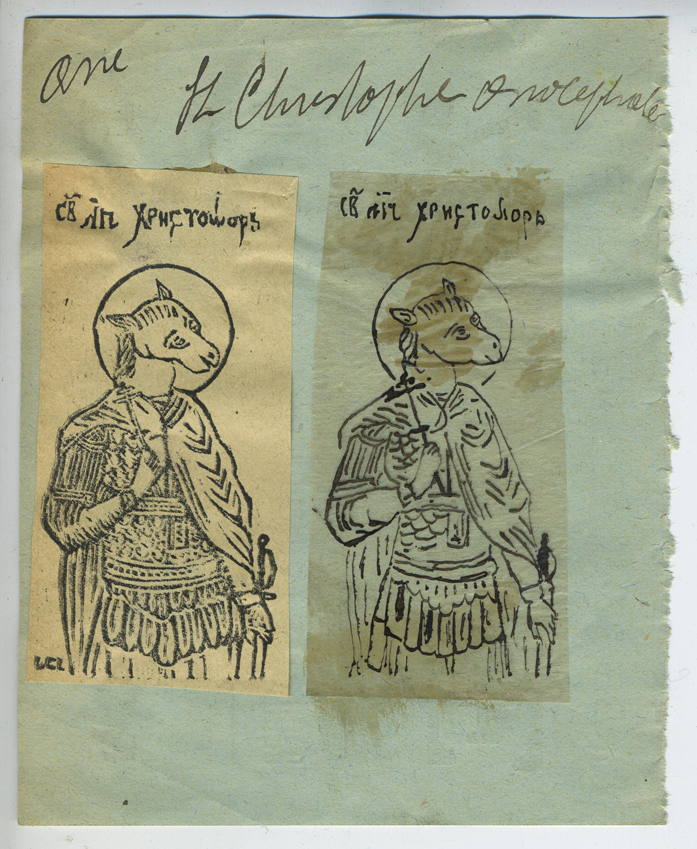 âne
St Christophe onocéphale
св мч христофоръ
св мч христофоръ
LCL